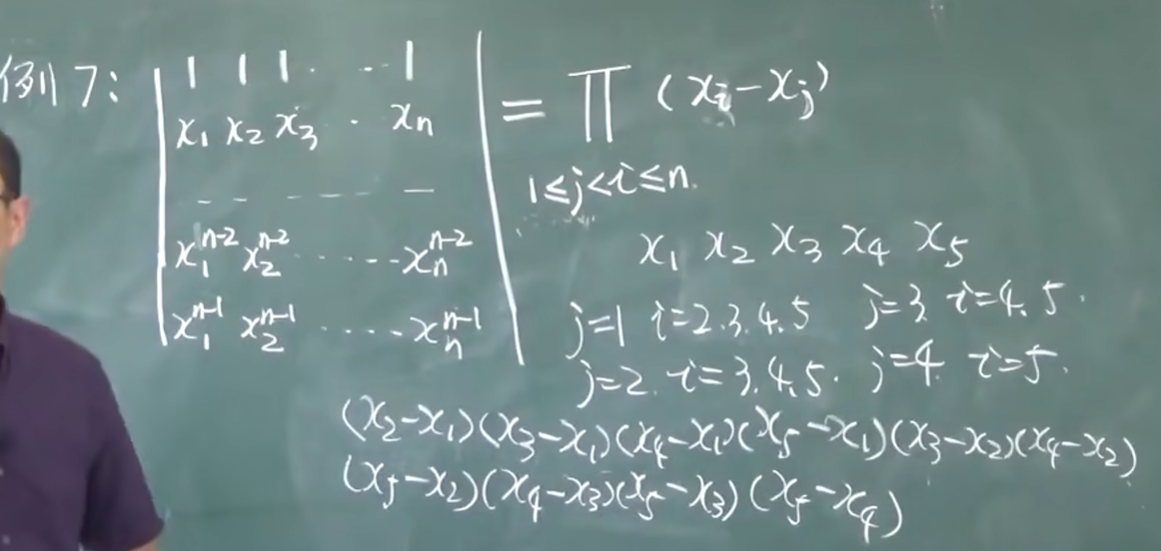 例7: | 1 1 1 . . . - 1 | = ∏ (xᵢ-xⱼ)
x₁ x₂ x₃ . xₙ
1≤j<i≤n.
x₁ⁿ⁻² x₂ⁿ⁻² ······ xₙⁿ⁻²
x₁ⁿ⁻¹ x₂ⁿ⁻¹ ······ xₙⁿ⁻¹
x₁ x₂ x₃ x₄ x₅
j=1 i=2.3.4.5 j=3. i=4.5.
j=2. i=3.4.5. j=4. i=5.
(x₂-x₁)(x₃-x₁)(x₄-x₁)(x₅-x₁)(x₃-x₂)(x₄-x₂)
(x₅-x₂)(x₄-x₃)(x₅-x₃)(x₅-x₄)